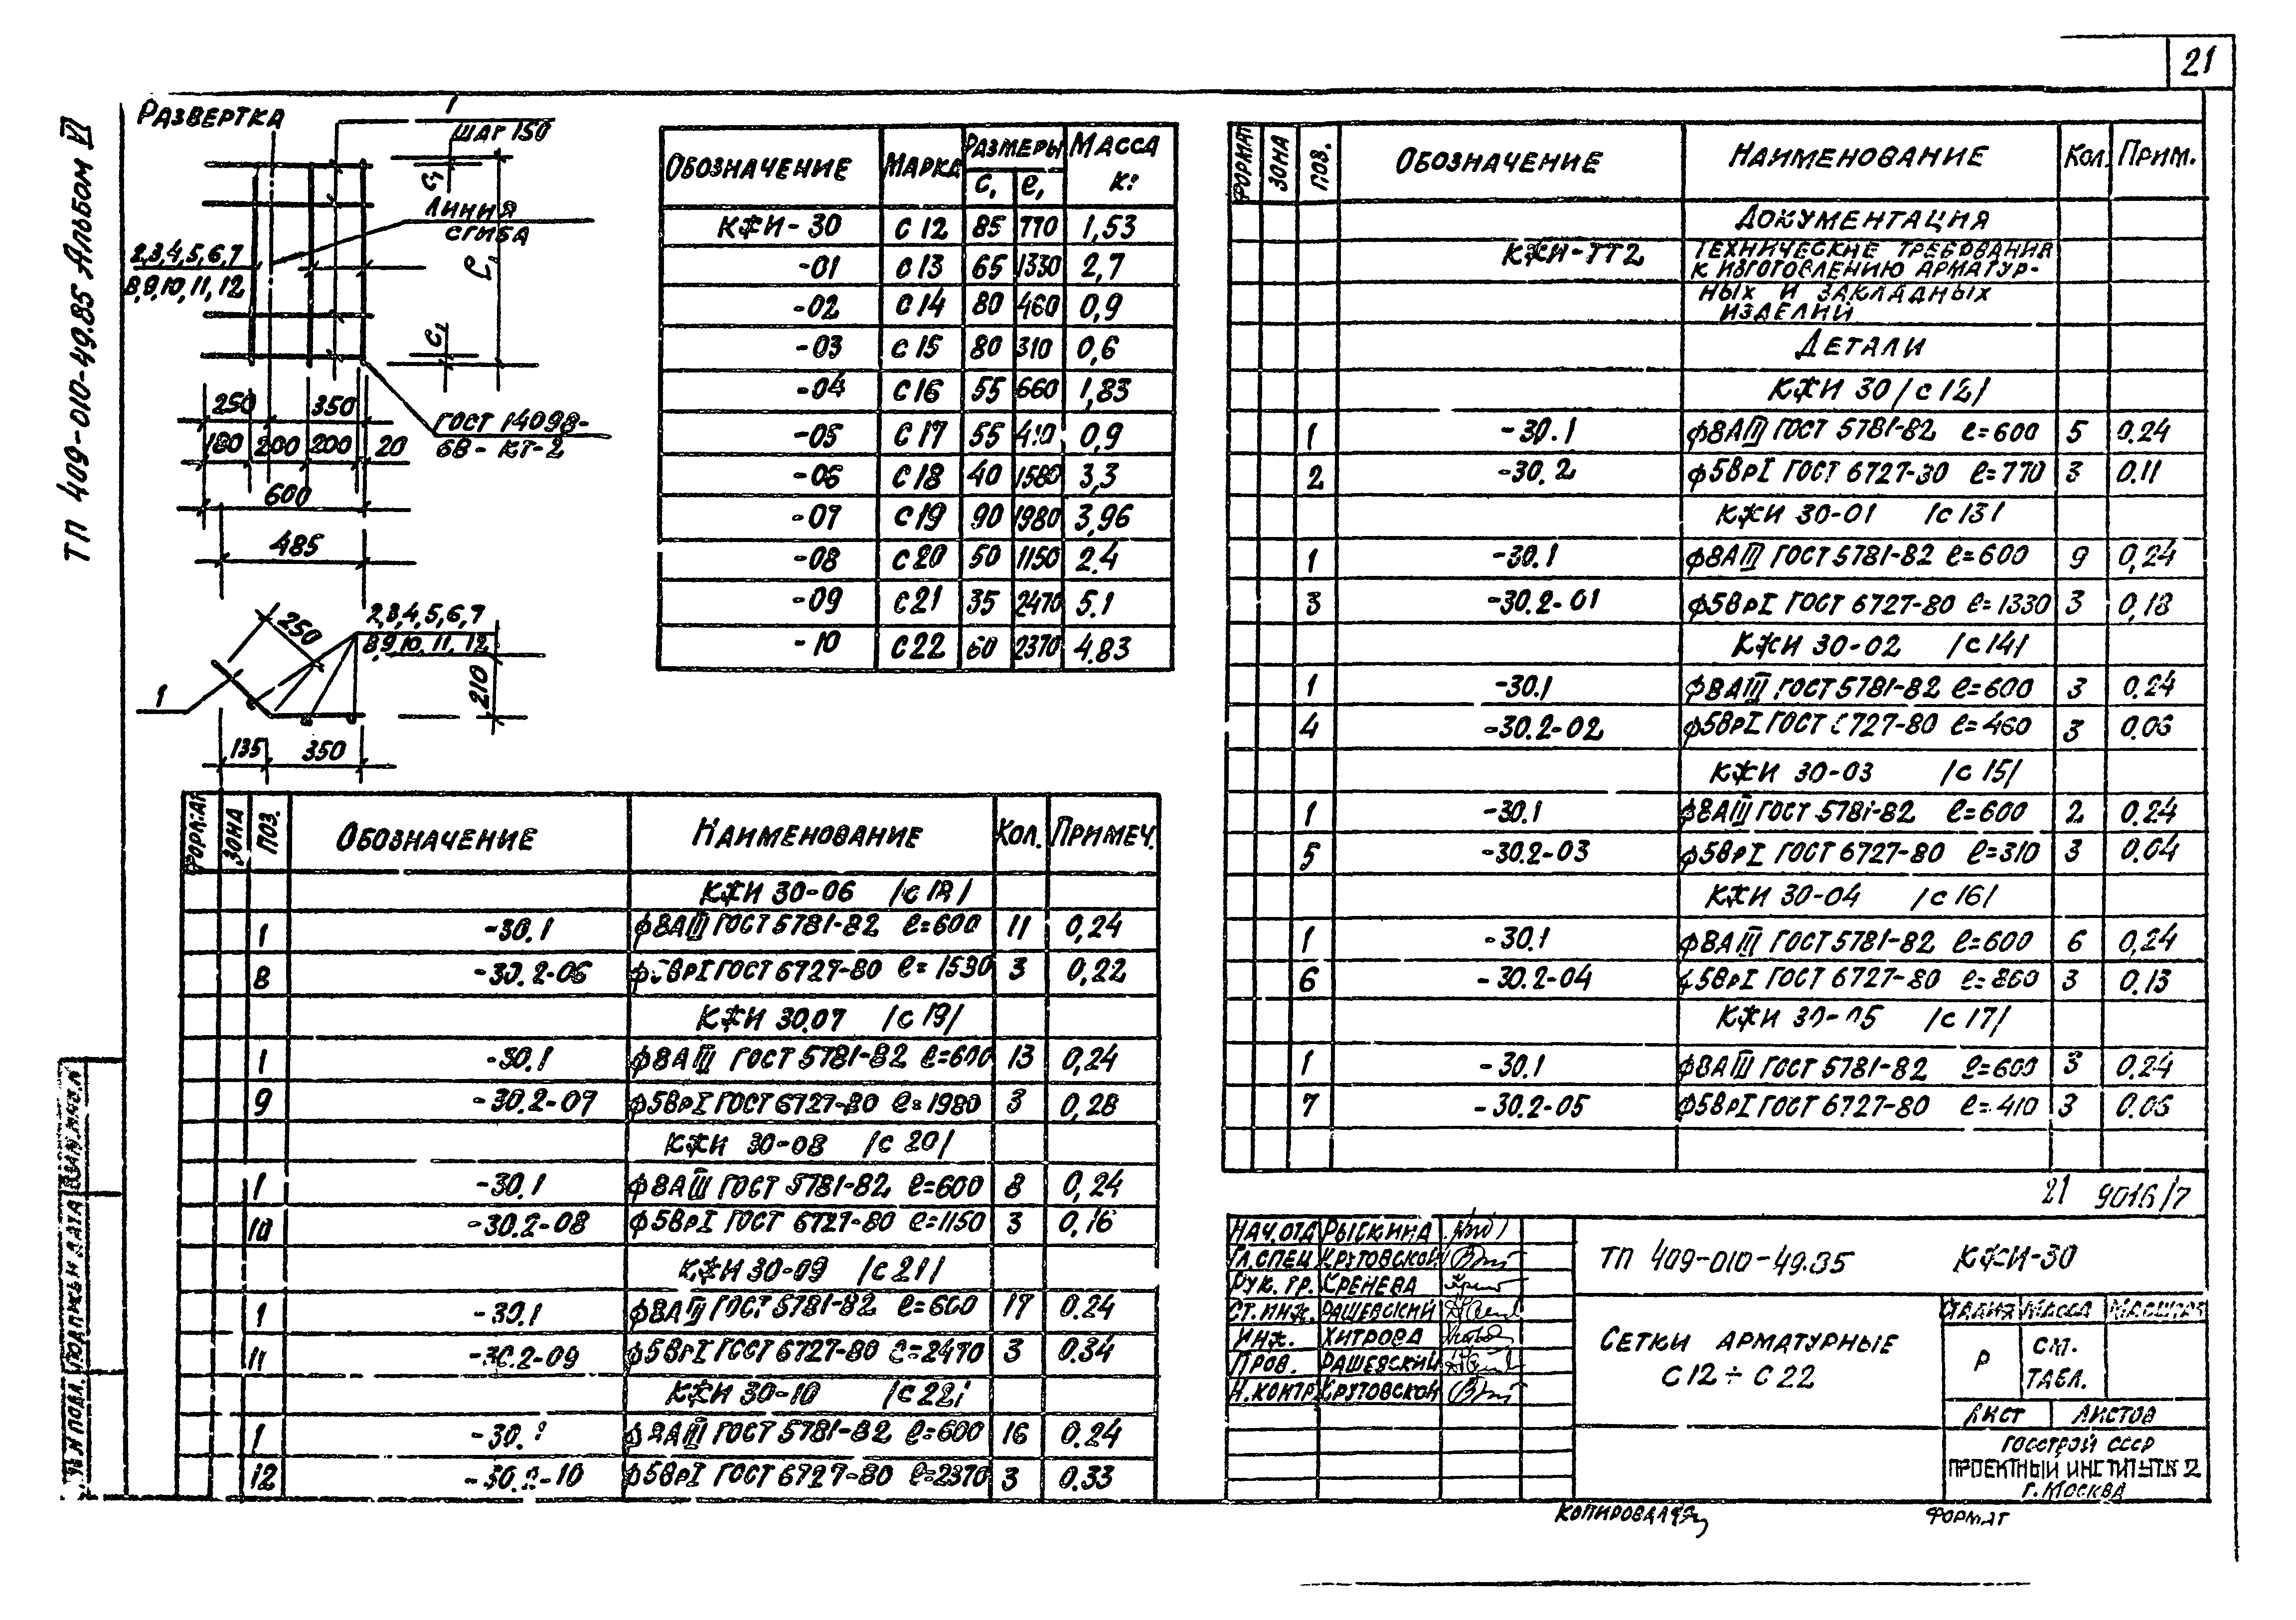 21
ТП 409-010-49.85 Альбом VI
Развертка
1
шаг 150
c₁
Линия
сгиба
2,3,4,5,6,7
8,9,10,11,12
ℓ₁
c₁
250 350
180 200 200 20
600
485
ГОСТ 14098-
68-КТ-2
250
2,3,4,5,6,7
8,9,10,11,12
210
1
135 350
Обозначение Марка Размеры Масса
c₁ ℓ₁
КЖИ-30 С12 85 770 1,53
-01 С13 65 1330 2,7
-02 С14 80 460 0,9
-03 С15 80 310 0,6
-04 С16 55 660 1,83
-05 С17 55 0,9
-06 С18 40 1580 3,3
-07 С19 90 1980 3,96
-08 С20 50 1150 2.4
-09 С21 35 2470 5.1
-10 С22 60 2370 4.83
Формат Зона Поз. Обозначение Наименование Кол. Примеч.
КЖИ 30-06 /С18/
1 -30.1 ф8АIII ГОСТ 5781-82 ℓ=600 11 0,24
8 -30.2-06 ГОСТ 6727-80 3 0,22
КЖИ 30.07 /С19/
1 -30.1 ф8АIII ГОСТ 5781-82 ℓ=600 13 0,24
9 -30.2-07 ф5ВрI ГОСТ 6727-80 ℓ=1980 3 0,28
КЖИ 30-08 /С20/
1 -30.1 ф8АIII ГОСТ 5781-82 ℓ=600 8 0,24
10 -30.2-08 ф5ВрI ГОСТ 6727-80 ℓ=1150 3 0,16
КЖИ 30-09 /С21/
1 -30.1 ф8АIII ГОСТ 5781-82 ℓ=600 17 0.24
11 -30.2-09 ф5ВрI ГОСТ 6727-80 ℓ=2470 3 0.34
КЖИ 30-10 /С22/
1 ф8АIII ГОСТ 5781-82 ℓ=600 16 0.24
12 ф5ВрI ГОСТ 6727-80 ℓ=2370 3 0.33
Формат Зона Поз. Обозначение Наименование Кол. Прим.
Документация
КЖИ-ТТ2 Технические требования
к изготовлению арматур-
ных и закладных
изделий
Детали
КЖИ 30 /С12/
1 -30.1 ф8АIII ГОСТ 5781-82 ℓ=600 5 0.24
2 -30.2 ф5ВрI ГОСТ 6727-30 ℓ=770 3 0.11
КЖИ 30-01 /С13/
1 -30.1 ф8АIII ГОСТ 5781-82 ℓ=600 9 0,24
3 -30.2-01 ф5ВрI ГОСТ 6727-80 ℓ=1330 3 0,18
КЖИ 30-02 /С14/
1 -30.1 ф8АIII ГОСТ 5781-82 ℓ=600 3 0.24
4 -30.2-02 ф5ВрI ГОСТ 6727-80 ℓ=460 3 0.06
КЖИ 30-03 /С15/
1 -30.1 ф8АIII ГОСТ 5781-82 ℓ=600 2 0.24
5 -30.2-03 ф5ВрI ГОСТ 6727-80 ℓ=310 3 0.04
КЖИ 30-04 /С16/
1 -30.1 ф8АIII ГОСТ 5781-82 ℓ=600 6 0,24
6 -30.2-04 ф5ВрI ГОСТ 6727-80 ℓ=860 3 0.13
КЖИ 30-05 /С17/
1 -30.1 ф8АIII ГОСТ 5781-82 ℓ=600 3 0.24
7 -30.2-05 ф5ВрI ГОСТ 6727-80 ℓ=410 3 0.06
21 9016/7
Нач.отд Рыскина
Гл.спец Крутовской
Рук. гр. Кренева
Ст.инж. Рашевский
Инж. Хитрова
Пров. Рашевский
Н.контр Крутовской
ТП 409-010-49.85 КЖИ-30
Сетки арматурные
С12÷С22
Стадия Масса Масштаб
Р См.
табл.
Лист Листов
Госстрой СССР
Проектный институт №2
г. Москва
Инв.№ подл. Подпись и дата Взам.инв.№
Копировал
Формат